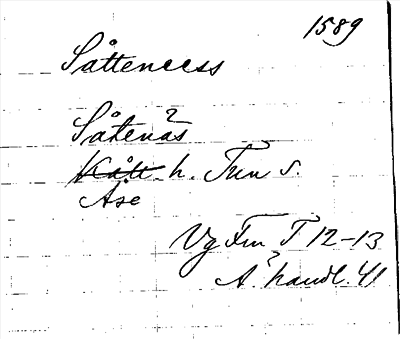 1589
Såtteneess
Såtenäs ?
Kålt. h. Tun s.
Åse
Vg Fm I 12-13
Ä. handl. 41